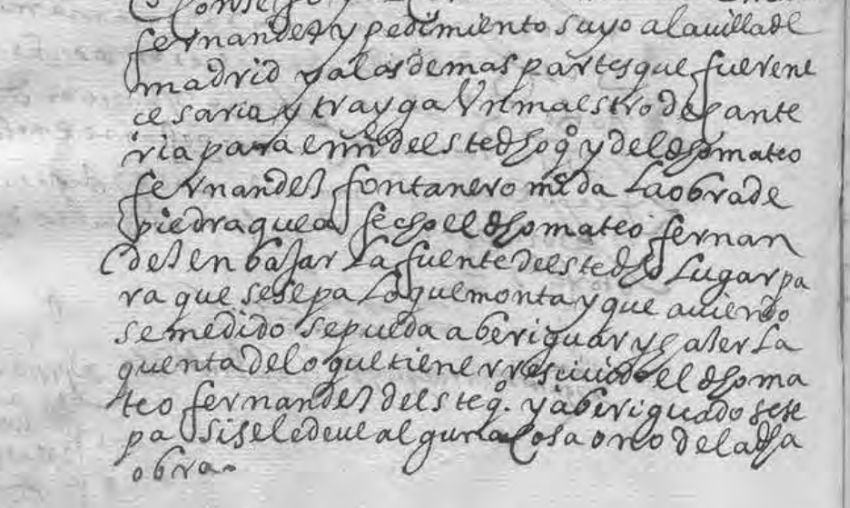 fernandez y pedimiento suyo a la uilla de
madrid y a las demas partes que fuere ne
cesario y trayga Un maestro de cante
ria para en nre deeste dho qo y del dho mateo
fernandez fontanero mida La obra de
piedra que a fecho el dho mateo fernan
dez en bajar La fuente deeste dho Lugar pa
ra que se sepa Lo que monta y que auiendo
se medido se pueda aberiguar y hazer La
quenta de lo que tiene rresciuido el dho ma
teo fernandez deeste qo. y aberiguado se se
pa si se le deue alguna Cosa o no de la dha
obra.